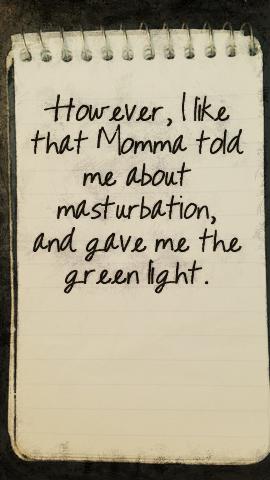 However, I like
that Momma told
me about
masturbation,
and gave me the
green light.